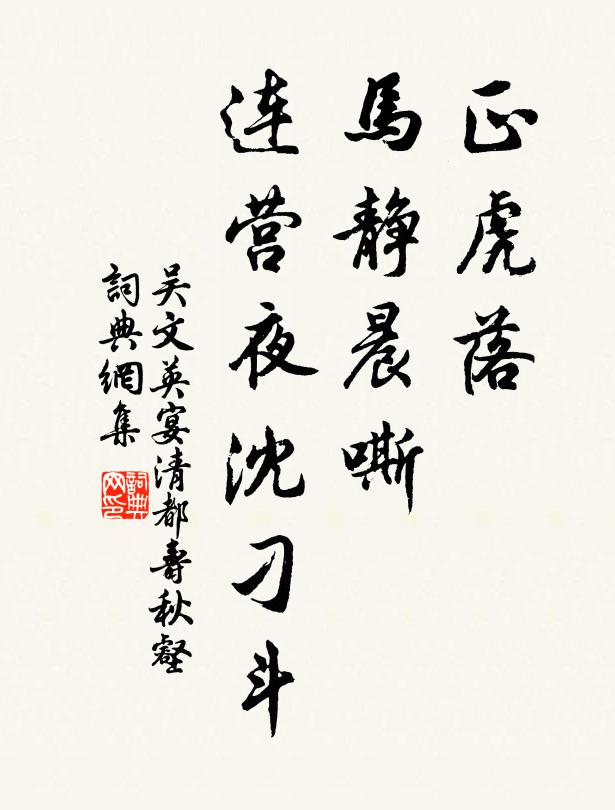 正虎落
馬静晨嘶
连营夜沈刁斗
吴文英宴清都壽秋壑
詞典網集
詞典网印